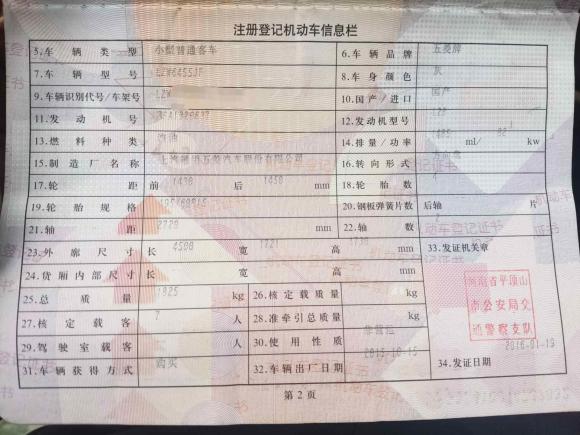 注册登记机动车信息栏
5.车辆类型 小型普通客车 6.车辆品牌 五菱牌
7.车辆型号 LZW6455JF 8.车身颜色 灰
9.车辆识别代号/车架号 LZW 10.国产/进口 国产
11.发动机号 12.发动机型号
13.燃料种类 汽油 14.排量/功率 1485 82 ml/ kw
15.制造厂名称 上汽通用五菱汽车股份有限公司 16.转向形式 方向盘
17.轮距 前 1430 后 1450 mm 18.轮胎数
19.轮胎规格 20.钢板弹簧片数 后轴 片
21.轴距 2720 mm 22.轴数 2
23.外廓尺寸 长 4500 宽 高 1730 mm 33.发证机关章
24.货厢内部尺寸 长 宽 高 mm
25.总质量 1925 kg 26.核定载质量 kg
河南省平顶山
市公安局交
通警察支队
27.核定载客 7 人 28.准牵引总质量 kg
29.驾驶室载客 人 30.使用性质 非营运
31.车辆获得方式 购买 32.车辆出厂日期 2015-10-15 34.发证日期 2016-01-19
第2页